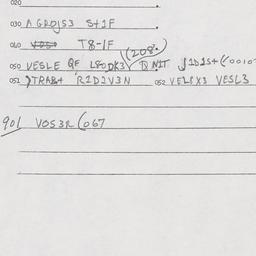 020
030 A GROJS3 S+1F
040 T8-1F
(208.
050 VESLE QF L80DK3 Q NIT J1D1S+(0010
051 )TRAB+ R2D2V3N 052 VEL8X3 VESL3
901 VOS3R (067